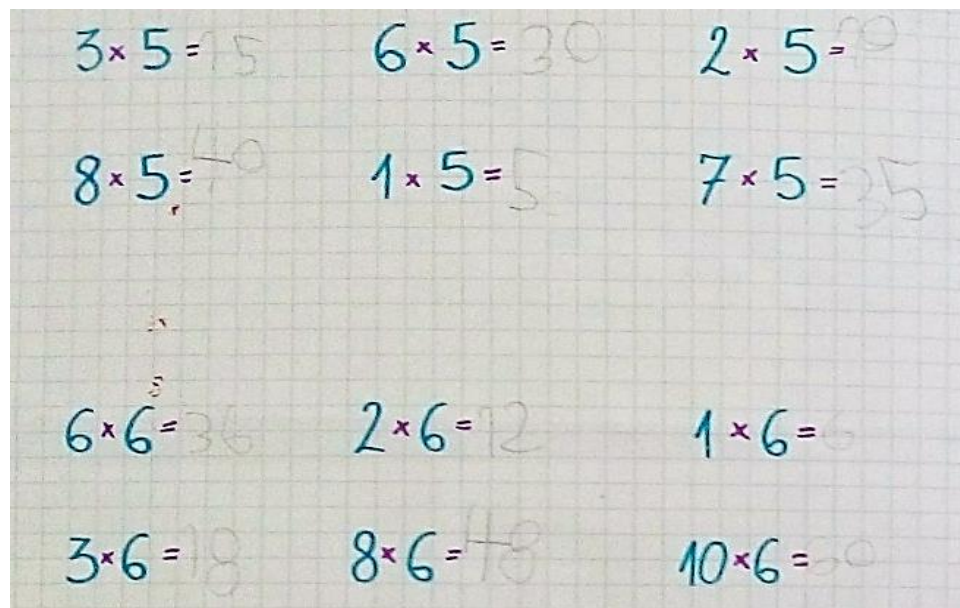 3 × 5 = 15 6 × 5 = 30 2 × 5 = 10
8 × 5 = 40 1 × 5 = 5 7 × 5 = 35
6 × 6 = 36 2 × 6 = 12 1 × 6 = 6
3 × 6 = 18 8 × 6 = 48 10 × 6 = 60